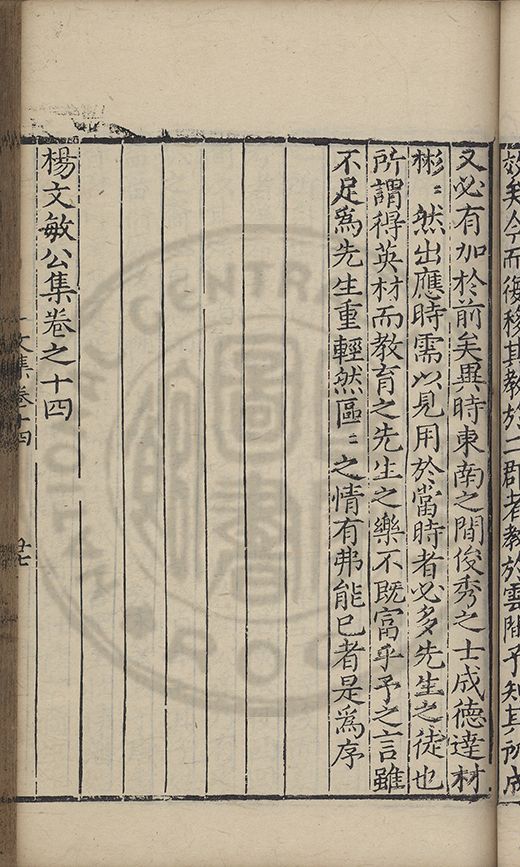 效矣今而復移其教於二郡者教於雲間予知其所成
又必有加於前矣異時東南之間俊秀之士成德達材
彬〻然出應時需以見用於當時者必多先生之徒也
所謂得英材而教育之先生之樂不既富乎予之言雖
不足爲先生重輕然區〻之情有弗能已者是爲序
楊文敏公集卷之十四
文集卷十四
廿七